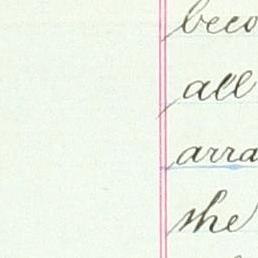 beco
all
arra
she